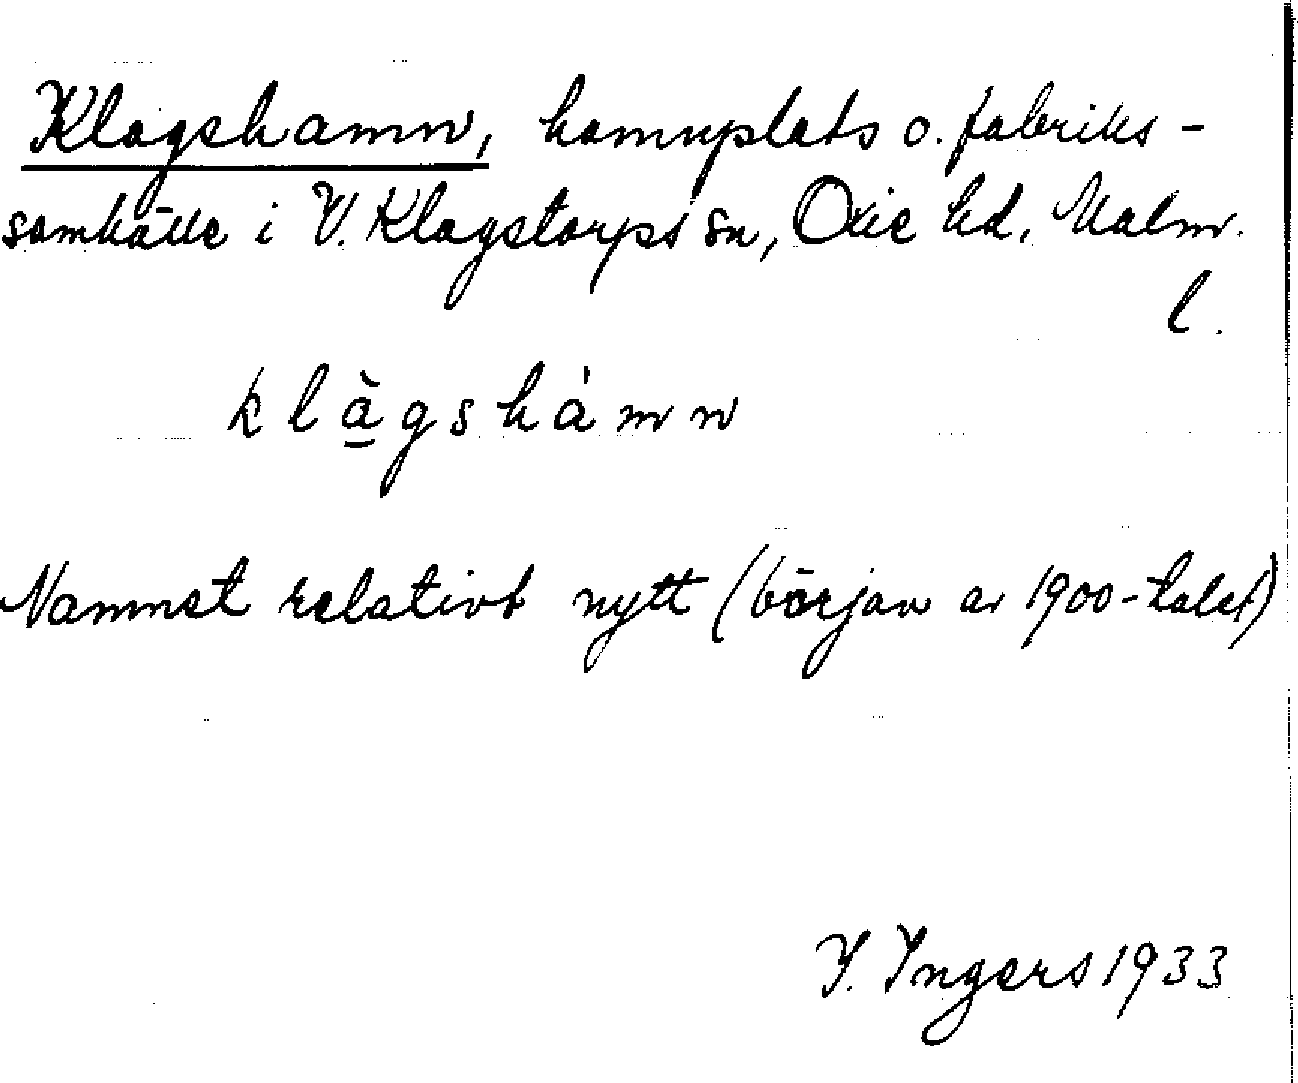 Klagshamn, hamnplats o. fabriks-
samhälle i V. Klagstorps sn, Oxie hd, Malm.
l.
klà̱gshámn
Namnet relativt nytt (början av 1900-talet)
I. Ingers 1933